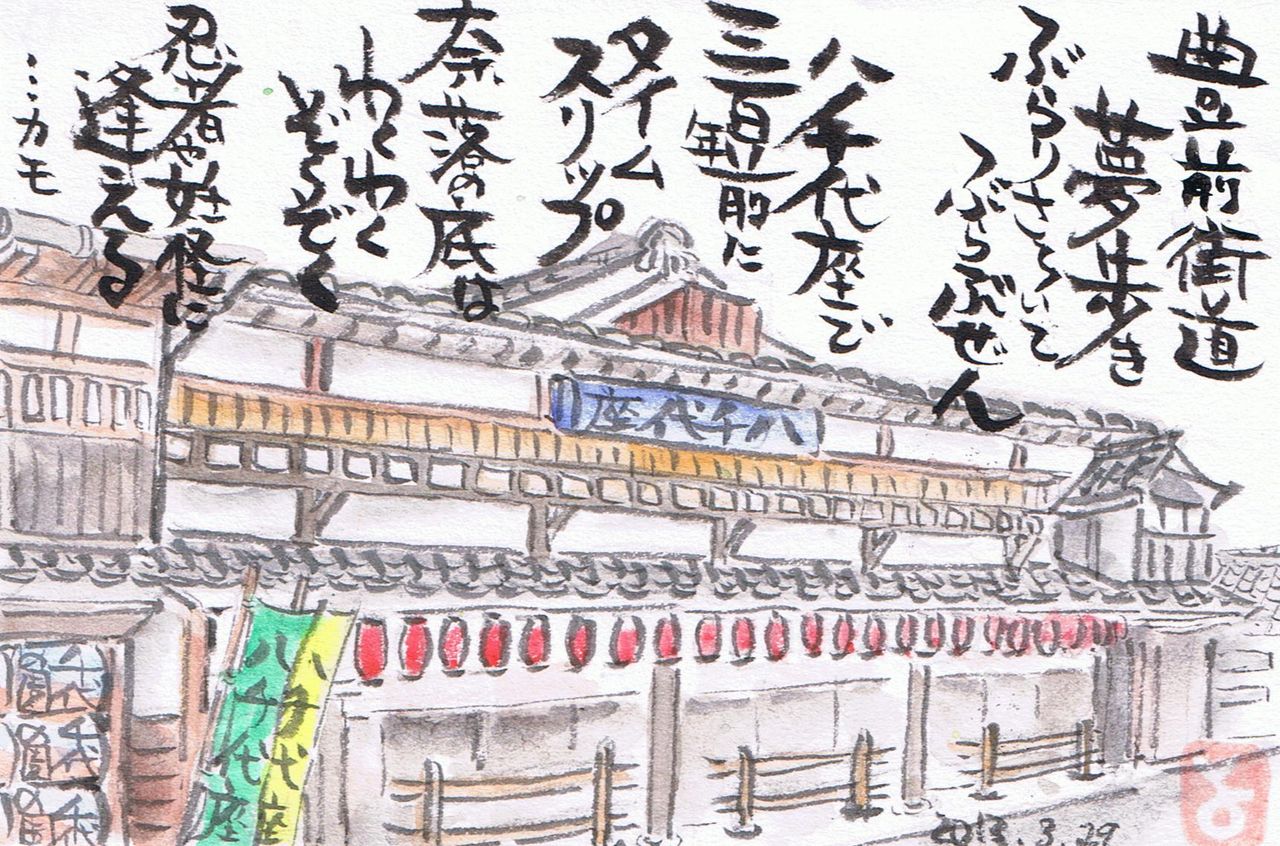 豊前街道
夢歩き
ぶらりさるいて
ぶらぶぜん
八千代座で
三百年前に
タイム
スリップ
奈落の底は
わくわく
ぞくぞく
忍者や妖怪に
逢える
…ミカモ
八千代座
八千代座
八千代座
千代
千代
代
2013.3.29
と